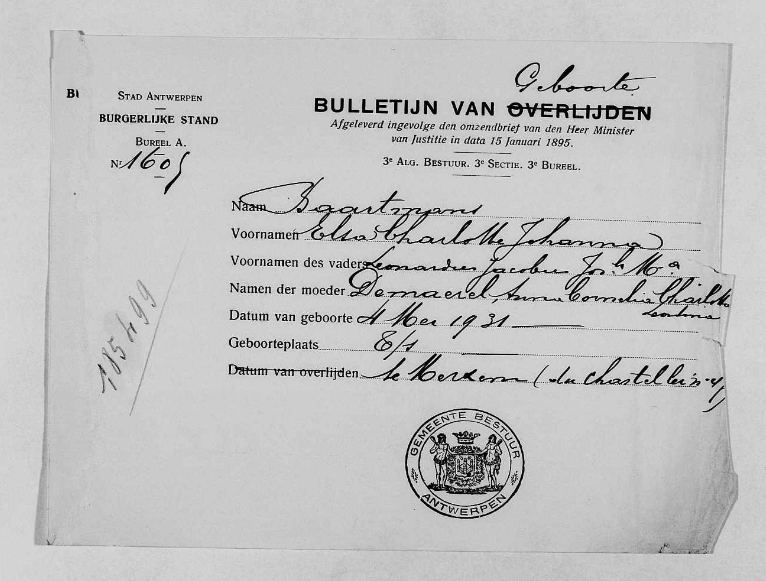 Geboorte
B
STAD ANTWERPEN
BURGERLIJKE STAND
BUREEL A.
Nr 1605
BULLETIJN VAN OVERLIJDEN
Afgeleverd ingevolge den omzendbrief van den Heer Minister
van Justitie in data 15 Januari 1895.
3e ALG. BESTUUR. 3e SECTIE. 3e BUREEL.
Naam Baartmans
Voornamen Elsa Charlotte Johanna
Voornamen des vaders Leonardus Jacobus Jos.h M.a
Namen der moeder Demaerel, Anna Cornelia Charlotte
Leontina
Datum van geboorte 4 Mei 1931
Geboorteplaats E/s
Datum van overlijden te Merxem (du chastellei n. 4)
185499
GEMEENTE BESTUUR
ANTWERPEN